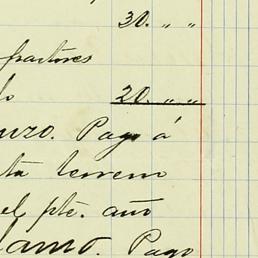 30. " "
fractores
lo 20. " "
nzo. Pago á
ta terreno
el pte. año
lamo. Pago